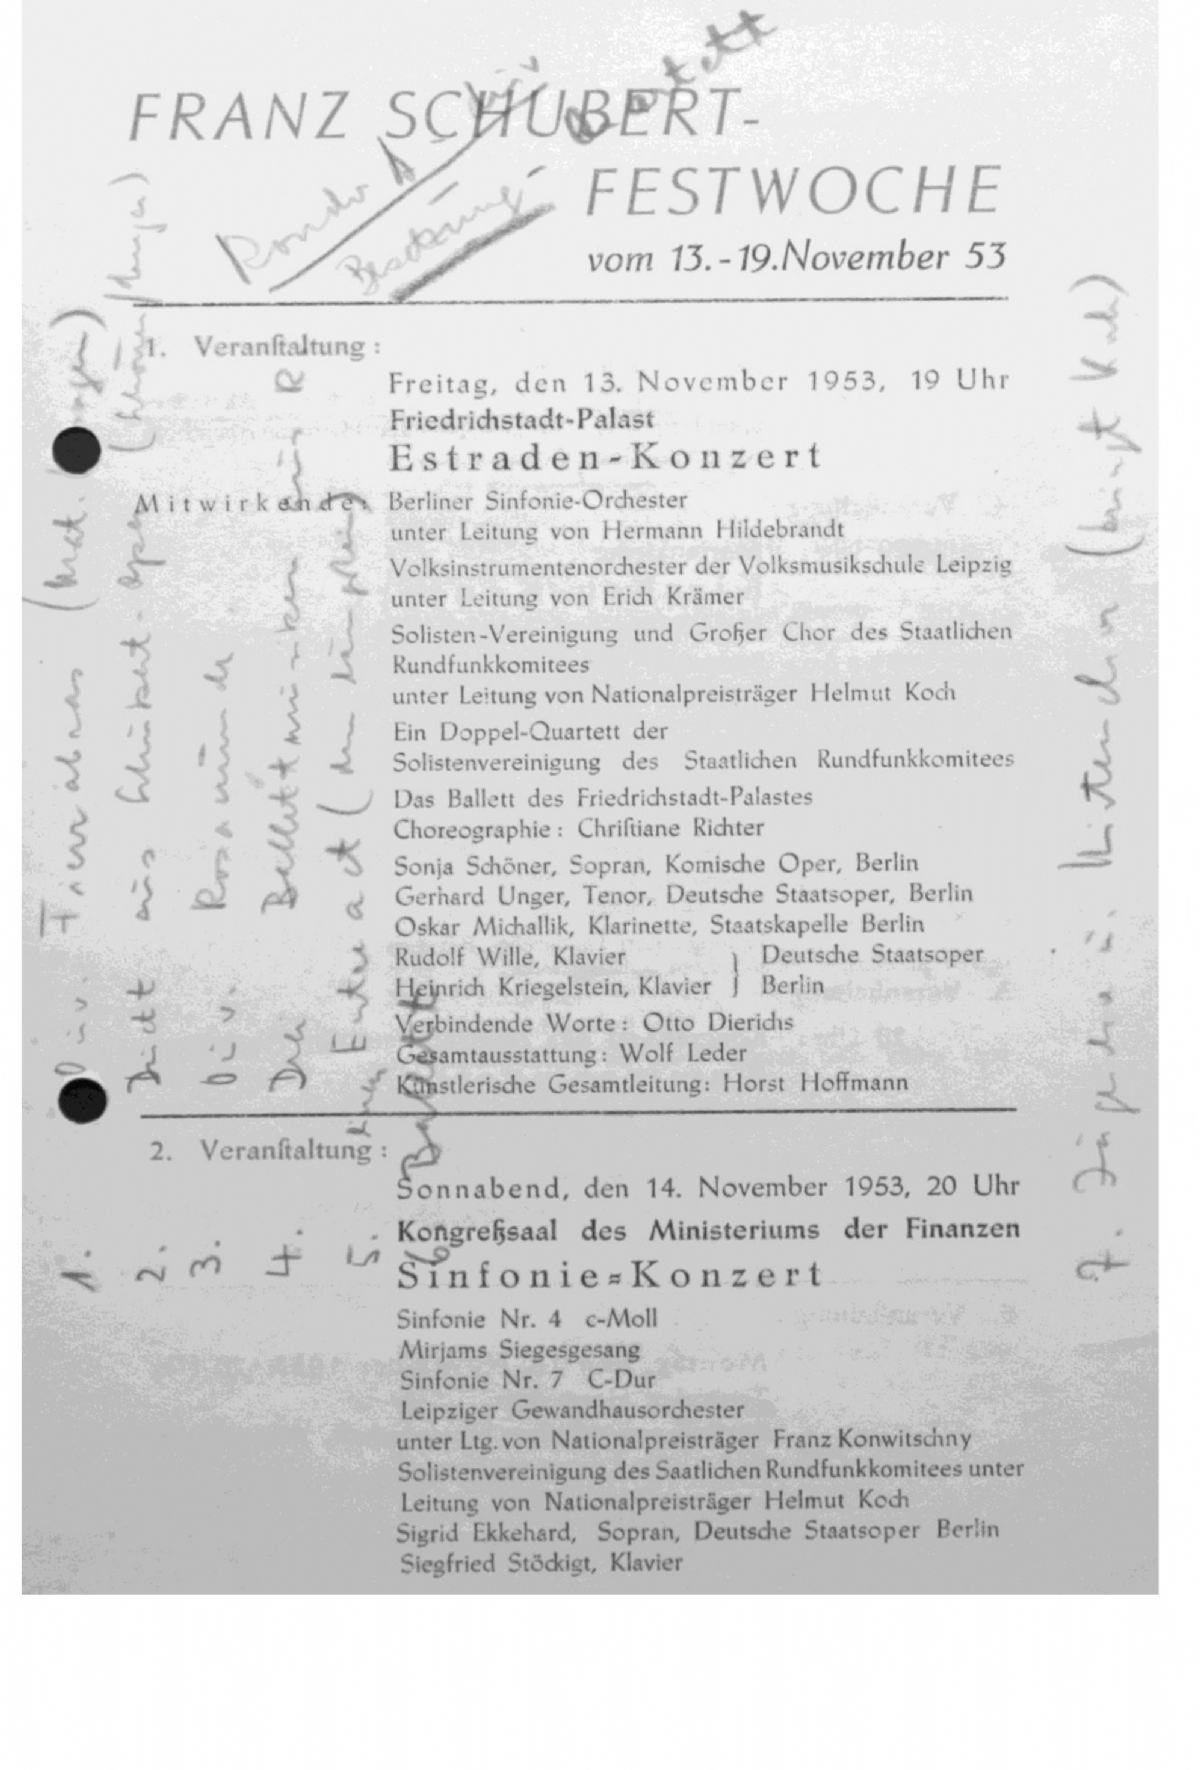 FRANZ SCHUBERT-
FESTWOCHE
vom 13.-19.November 53
Rondo A
Ballett
1. Veranſtaltung:
Freitag, den 13. November 1953, 19 Uhr
Friedrichstadt-Palast
Estraden-Konzert
Mitwirkende: Berliner Sinfonie-Orchester
unter Leitung von Hermann Hildebrandt
Volksinstrumentenorchester der Volksmusikschule Leipzig
unter Leitung von Erich Krämer
Solisten-Vereinigung und Großer Chor des Staatlichen
Rundfunkkomitees
unter Leitung von Nationalpreisträger Helmut Koch
Ein Doppel-Quartett der
Solistenvereinigung des Staatlichen Rundfunkkomitees
Das Ballett des Friedrichstadt-Palastes
Choreographie: Chriſtiane Richter
Sonja Schöner, Sopran, Komische Oper, Berlin
Gerhard Unger, Tenor, Deutsche Staatsoper, Berlin
Oskar Michallik, Klarinette, Staatskapelle Berlin
Rudolf Wille, Klavier } Deutsche Staatsoper
Heinrich Kriegelstein, Klavier } Berlin
Verbindende Worte: Otto Dierichs
Gesamtausstattung: Wolf Leder
Künstlerische Gesamtleitung: Horst Hoffmann
2. Veranſtaltung:
Sonnabend, den 14. November 1953, 20 Uhr
Kongreßsaal des Ministeriums der Finanzen
Sinfonie=Konzert
Sinfonie Nr. 4 c-Moll
Mirjams Siegesgesang
Sinfonie Nr. 7 C-Dur
Leipziger Gewandhausorchester
unter Ltg. von Nationalpreisträger Franz Konwitschny
Solistenvereinigung des Saatlichen Rundfunkkomitees unter
Leitung von Nationalpreisträger Helmut Koch
Sigrid Ekkehard, Sopran, Deutsche Staatsoper Berlin
Siegfried Stöckigt, Klavier
1. Fierrabras
2. Duett aus Schubert-Oper (Schöner/Unger)
3. Rosamunde
4. Drei Ballettmusiken
5. Entreact
6. Ballett
7. Hirtenchor (bringt Koch)